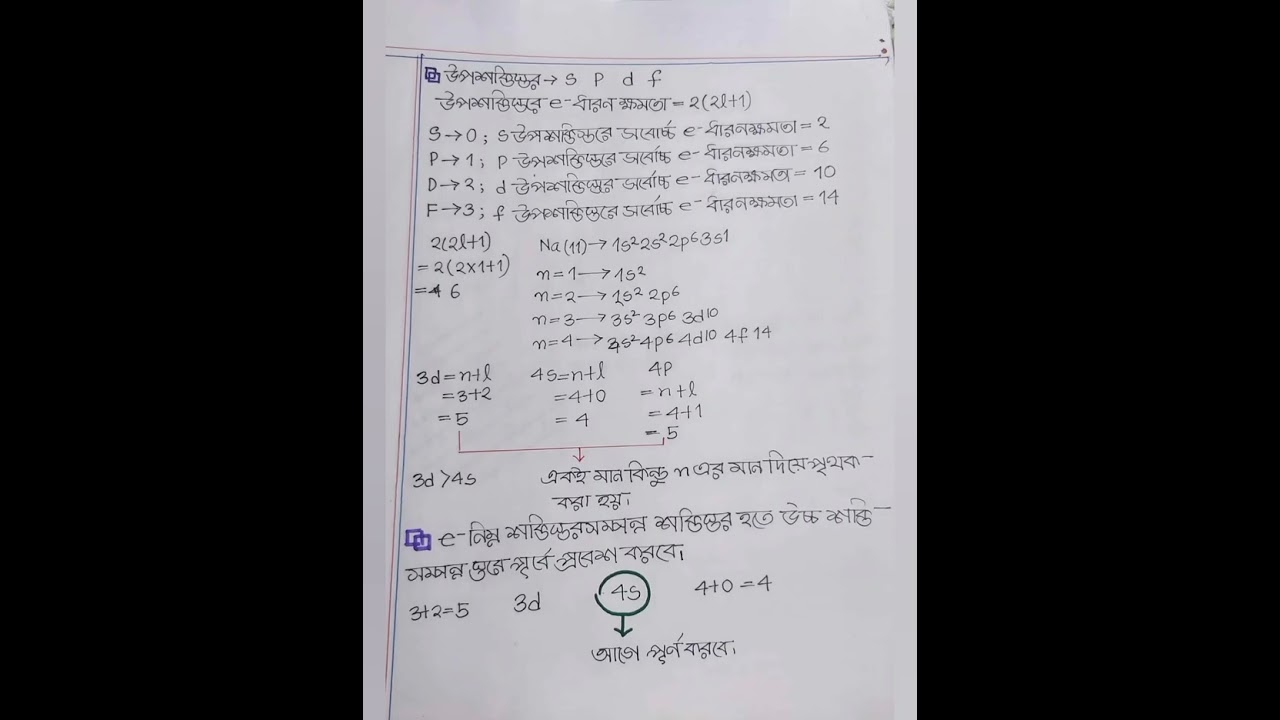 উপশক্তিস্তর→ S P d f
উপশক্তিস্তরে e- ধারন ক্ষমতা = 2(2l+1)
S→0; S উপশক্তিস্তরে সর্বোচ্চ e- ধারনক্ষমতা = 2
P→1; P উপশক্তিস্তরে সর্বোচ্চ e- ধারনক্ষমতা = 6
D→2; d উপশক্তিস্তরে সর্বোচ্চ e- ধারনক্ষমতা = 10
F→3; f উপশক্তিস্তরে সর্বোচ্চ e- ধারনক্ষমতা = 14
2(2l+1)
= 2(2×1+1)
= 6
Na(11)→1s² 2s² 2p⁶ 3s1
n=1→1s²
n=2→1s² 2p⁶
n=3→3s² 3p⁶ 3d¹⁰
n=4→4s² 4p⁶ 4d¹⁰ 4f 14
3d=n+l
=3+2
=5
4s=n+l
=4+0
=4
4p
=n+l
=4+1
=5
3d>4s
একই মান কিন্তু n এর মান দিয়ে পৃথক
করা হয়।
e- নিম্ন শক্তিস্তরসম্পন্ন শক্তিস্তর হতে উচ্চ শক্তি-
সম্পন্ন স্তরে পূর্বে প্রবেশ করবে।
3+2=5 3d 4s 4+0=4
আগে পূর্ন করবে।